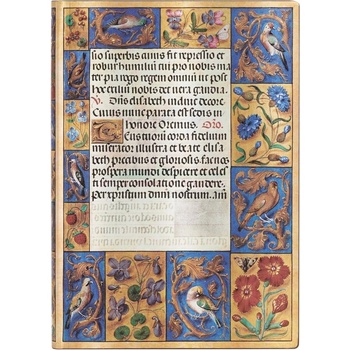 sio superbis annis fit repressio et
robur humili cui pro nobis ma
ter pia rego regem omniū ut post
hoc exiliū nobis det vera gaudia
V. Ora elisabeth in dive decore
Cuius nunc parata est sedis in
honore Oremus. Oro.
Tuorum corda fidelium
miserator illustra et beate elisa
beth precibus gloriosis facnos
prospera mundi despicere et celes
ti semper consolatione gaudere.
Per xpistum dnm nostrum. am